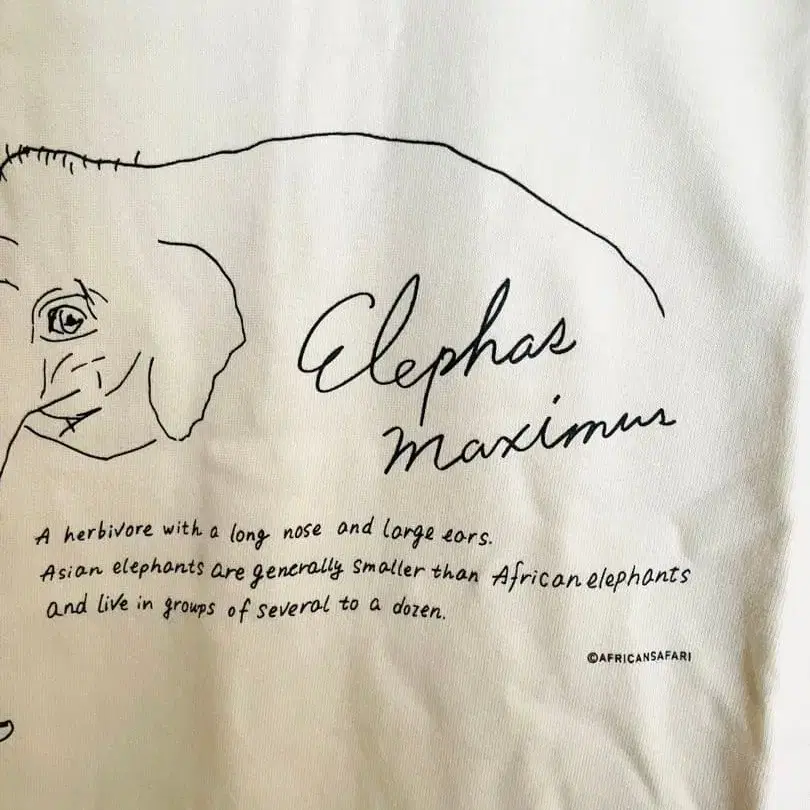 Elephas
maximus
A herbivore with a long nose and large ears.
Asian elephants are generally smaller than African elephants
and live in groups of several to a dozen.
©AFRICANSAFARI